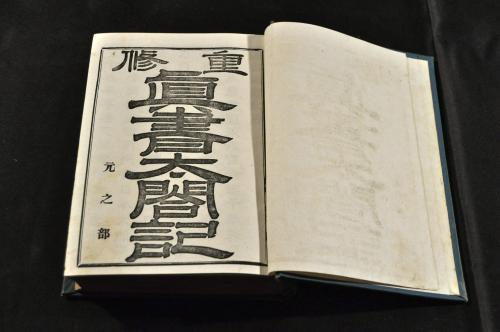 重修
真書太閤記
元之部